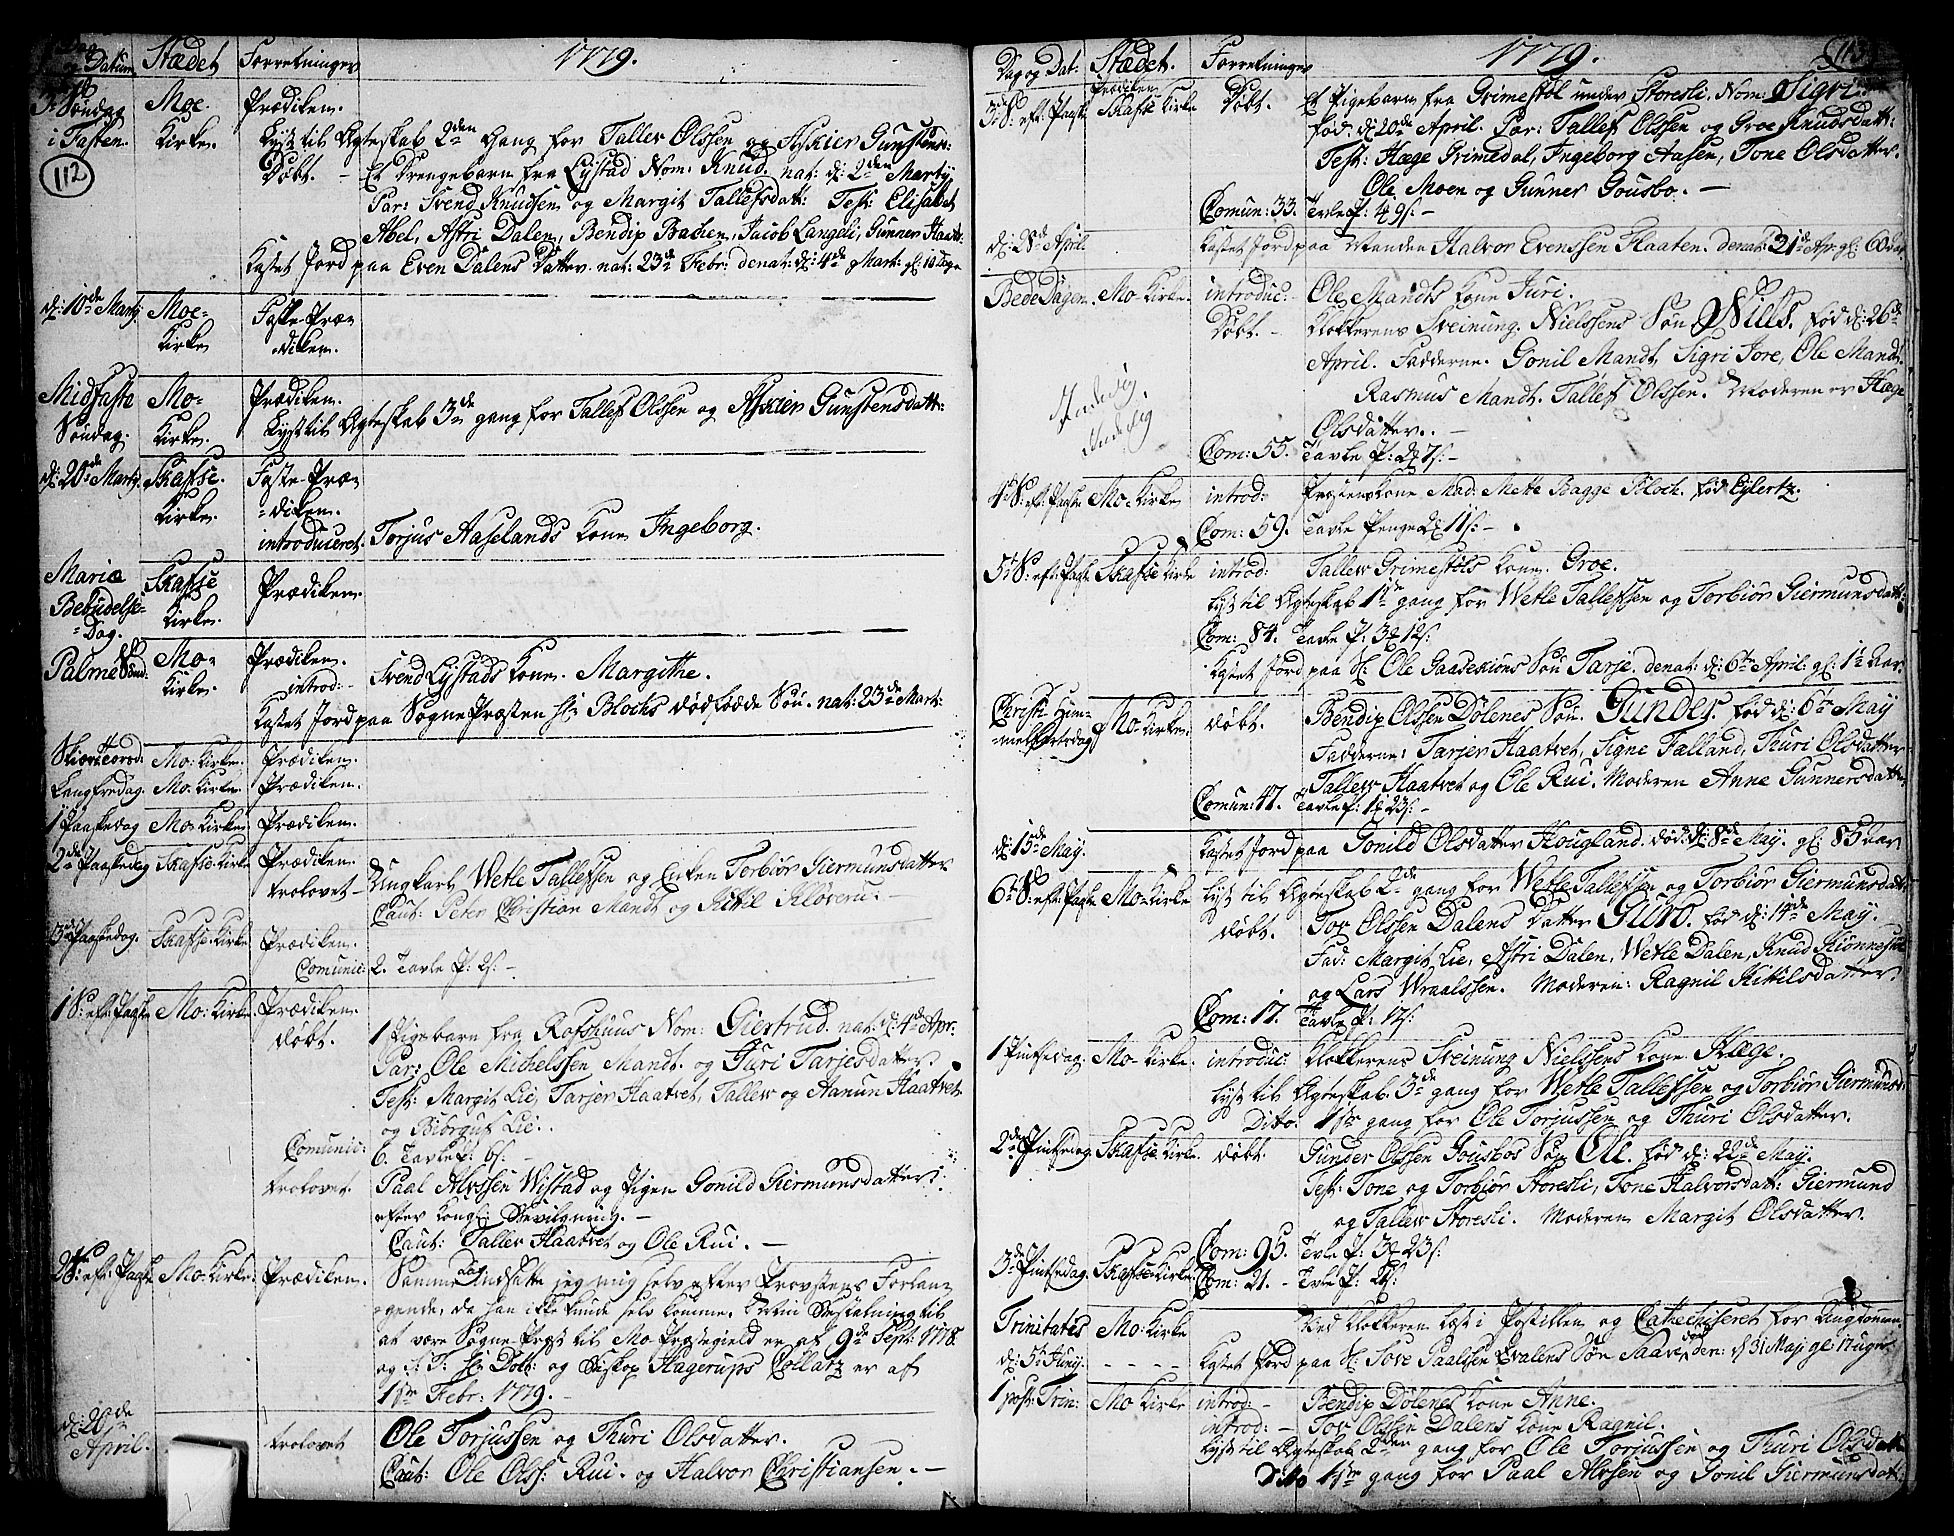 Dag og Datum Stædet Forretninger 1779.
3 Søndag i Fasten. Moe Kirke. Prædiken.
Lyst til Ægteskab 2den Gang for Tallev Olssen og Askier Gunstens:
Døbt. - Et Drengebarn fra Lystad Nom: Knud. nat: d: 2den Marty
Par: Svend Knudsen og Margit Tallefsdatt: Test: Elisabet
Abel, Astri Dalen, Bendip Bachen, Jacob Langeli, Gunner Haatv:
Kastet Jord paa Even Dalens Datter. nat: 23de Febr: denat: d: 4de Mart: gl: 10 Dage
112
d: 10de Marty Moe Kirke Faste-Prædiken.
Midfaste Søndag. Mo-Kirke. Prædiken.
Lyst til Ægteskab 3de gang for Tallef Olssen og Askier Gunstensdatt:
d: 20de Marty Skafse Kirke. Faste-Prædiken.
introduceret: Torjus Aaselands Kone Ingeborg.
Mariæ Bebudelse-Dag. Skafse Kirke. Prædiken.
Palme Sønd: Mo-Kirke. Prædiken.
introd: - Svend Lystads Kone Margithe.
Kastet Jord paa Sogne Præsten Hr: Blochs dødfødde Søn. nat: 23de Mart:
Skiertorsd: Mo-Kirke. Prædiken.
Langfredag. Mo-Kirke. Prædiken.
1 Paaskedag Mo-Kirke Prædiken.
2de Paaskedag Skafse-Kirke Prædiken.
trolovet - Ungkarl Wetle Tallefsen og Enken Torbiør Giermunsdatter
Caut: Peter Christian Mandt og Kittil Kløveru. -
3de Paaskedag. Skafse-Kirke Prædiken.
Comunic: 2. Tavle P: 2s: -
1 S: eft: Paaske Mo-Kirke Prædiken.
døbt. 1 Pigebarn fra Rofshuus Nom: Giertrud. nat: d: 4de Apr.
Par: Ole Michelssen Mandt. og Juri Tarjesdatter.
Test: Margit Lie, Tarjer Haatvet, Tallew og Aanun Haatvet
og Biorguf Lie.
Comunic: 6. Tavle P: 6s: -
trolovet. Paal Alvssen Wistad og Pigen Gonild Giermunsdatter
efter Kongl: Bevilgning. -
Caut: Tallev Haatvet og Ole Rui. -
2 S: eft: Paaske Mo-Kirke. Prædiken. Samme Dag indsatte jeg mig selv efter Provstens Forlan-
-gende, da han ikke kunde selv komme. Bestalning til
at være Sogne-Præst til Mo-Præstegield er af 9de Sept: 1778.
og Biskop Hagerups Collatz er af
1ste Febr: 1779. -
d: 26de April. trolovet Ole Torjussen og Thuri Olsdatter.
Caut: Ole Olss: Rui. og Halvor Christiansen. -
Dag og Dat: Stædet. Forretninger 1779. 113
3de S: eft: Paaske Prædiken Skafse Kirke Døbt. Et Pigebarn fra Grimestøl under Storesli. Nom: Sigri
fød d: 20de April. Par: Tallef Olssen og Groe Knudsdatt:
Test: Hæge Grimedal, Ingeborg Aasen, Tone Olsdatter.
Ole Moen og Gunner Gousbo. -
Comun: 33. Tavle P: 49s: -
d: 28de April Kastet Jord paa Manden Halvor Evenssen Flaaten. denat: 21de Apr. gl: 60 Aar
Bede Dagen. Mo-Kirke. introduc:- Ole Mandts Kone Juri.
Døbt. - Klokkerens Sveinung Nielssens Søn Niels. fød d: 26de
April. Fadderne. Gonil Mandt, Sigri Jore, Ole Mandt
Rasmus Mandt. Tallef Olssen. Moderen er Hæge
Olsdatter. -
Com: 55. Tavle P: 7s: -
4de S: eft: Paaske Mo-Kirke introd: Præstens Kone Mad: Mette Bagge Bloch. fød Eylertz.
Com: 59. Tavle Penge 11s: -
5te S: eft: Paaske Skafse Kirke introd: Tallew Grimestøls Kone Groe.
Lyst til Ægteskab 1ste gang for Wetle Tallefsen og Torbiør Giermunsdatt:
Com: 84. Tavle P: 3 12s:
Kastet Jord paa Sl: Ole Gaasekions Søn Tarje. denat: d: 6te April. gl: 1½ Aar.
Christi Himmelfartsdag Mo-Kirke. døbt. Bendip Olssen Dølenes Søn Gunder. fød d: 6te May
Fadderne: Tarjer Haatvet, Signe Falland, Thuri Olsdatter
Tallew Haatvet og Ole Rui. Moderen Anne Gunnersdatter
Comun: 47. Tavle P: 1 23s: -
d: 15de May. Kastet Jord paa Gonild Olsdatter Hougland. død: d: 8de May. gl: 85 Aar
6te S: eft: Paaske Mo-Kirke Lyst til Ægteskab 2de gang for Wetle Tallefsen og Torbiør Giermunsdatt:
døbt. Tov Olssen Dalens Datter Guro. fød d: 14de May.
Fad: Margit Lie, Astri Dalen, Wetle Dalen, Knud Kiønnesul
og Lars Wraalssen. Moderen: Ragnil Kittilsdatter
Com: 17. Tavle P: 17s:
1 Pintsedag. Mo-Kirke. introduc: Klokkerens Sveinung Nielssens Kone Hæge.
Lyst til Ægteskab 3de gang for Wetle Tallefsen og Torbiør Giermunsd:
Ditto. 1ste gang for Ole Torjussen og Thuri Olsdatter.
2den Pintsedag Skafse-Kirke. døbt. Gunder Olssen Gousbos Søn Ole. fød d: 22de May.
Test: Tone og Torbiør Storesli, Tone Halvorsdatt: Giermund
og Tallew Storesli. Moderen Margit Olsdatter.
Com: 95. Tavle P: 3 23s:
3de Pintsedag. Skafse-Kirke. Com: 21. - Tavle P:
Trinitatis Mo-Kirke Ved Klokkeren læst i Postillen og Cathechiseret for Ungdommen
d: 5te Juny. - - - - Kastet Jord paa Sl: Sove Paalsen Evalens Søn Saave, den: d: 31 Maj gl: 17 uger.
1 post: Trin: Mo Kirke introd: - Bendip Dølenes Kone Anne.
introd: - Tov Olssen Dalens Kone Ragnil.
Lyst til Ægteskab 2den gang for Ole Torjussen og Thuri Olsdatt
Ditto 1ste gang for Paal Alvssen og Gonil Giermunsdat: